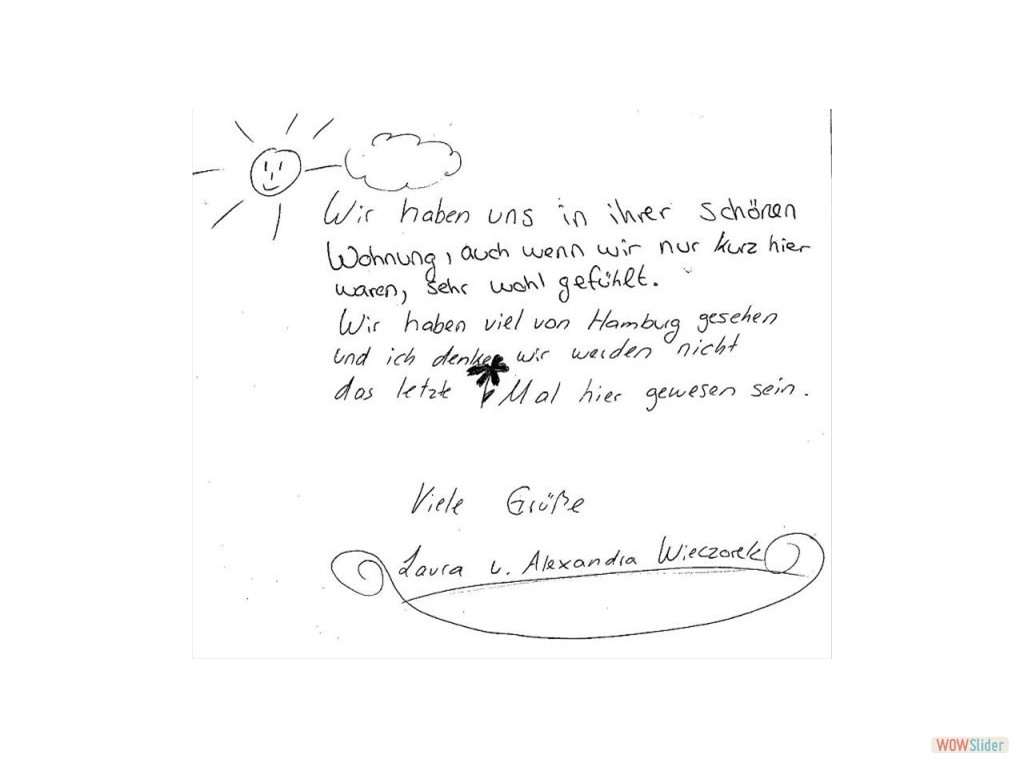 Wir haben uns in ihrer schönen
Wohnung, auch wenn wir nur kurz hier
waren, sehr wohl gefühlt.
Wir haben viel von Hamburg gesehen
und ich denke wir werden nicht
das letzte Mal hier gewesen sein.
Viele Grüße
Laura u. Alexandra Wieczorek
WOWSlider